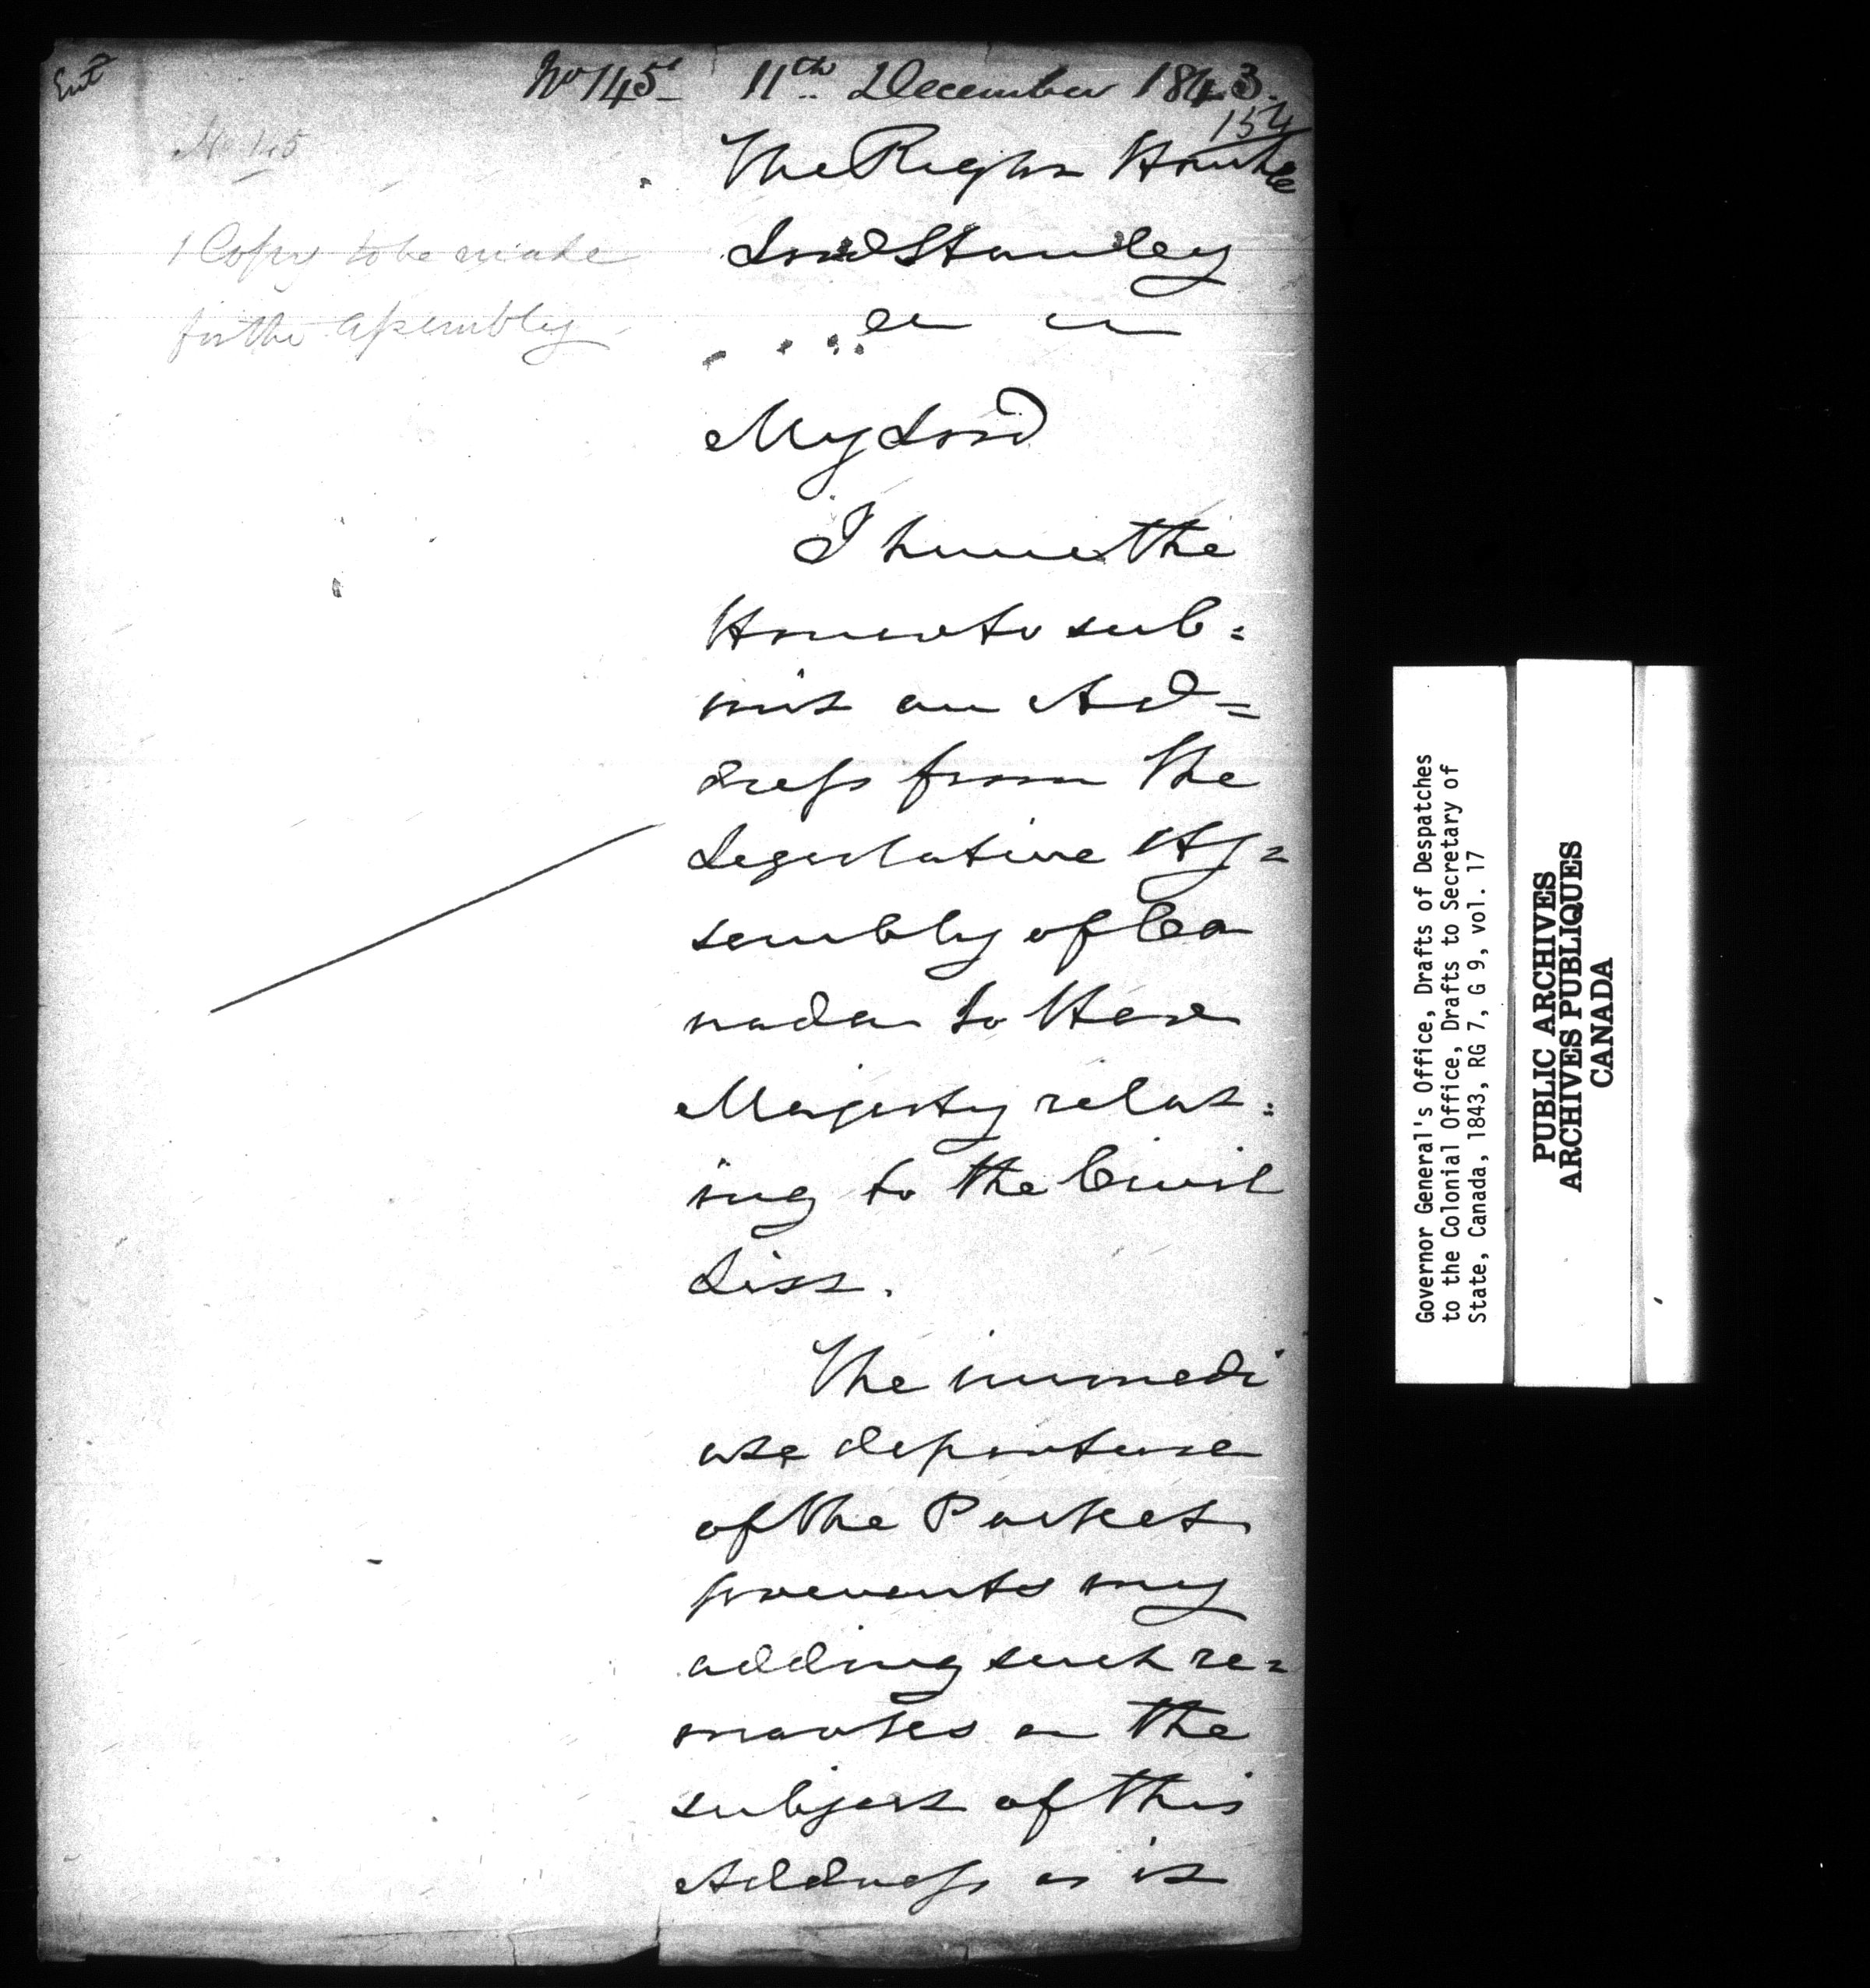 Ent
No 145 11th December 1843.
154
No 145
The Right Honble
Lord Stanley
1 Copy to be made
for the Assembly
My Lord
I have the
Honor to sub=
mit an Ad=
dress from the
Legislative As=
sembly of Ca
nada to Her
Majesty relat=
ing to the Civil
List.
The immedi
ate departure
of the Packet
prevents my
adding such re=
marks on the
subject of this
Address as it
Governor General's Office, Drafts of Despatches
to the Colonial Office, Drafts to Secretary of
State, Canada, 1843, RG 7, G 9, vol. 17
PUBLIC ARCHIVES
ARCHIVES PUBLIQUES
CANADA